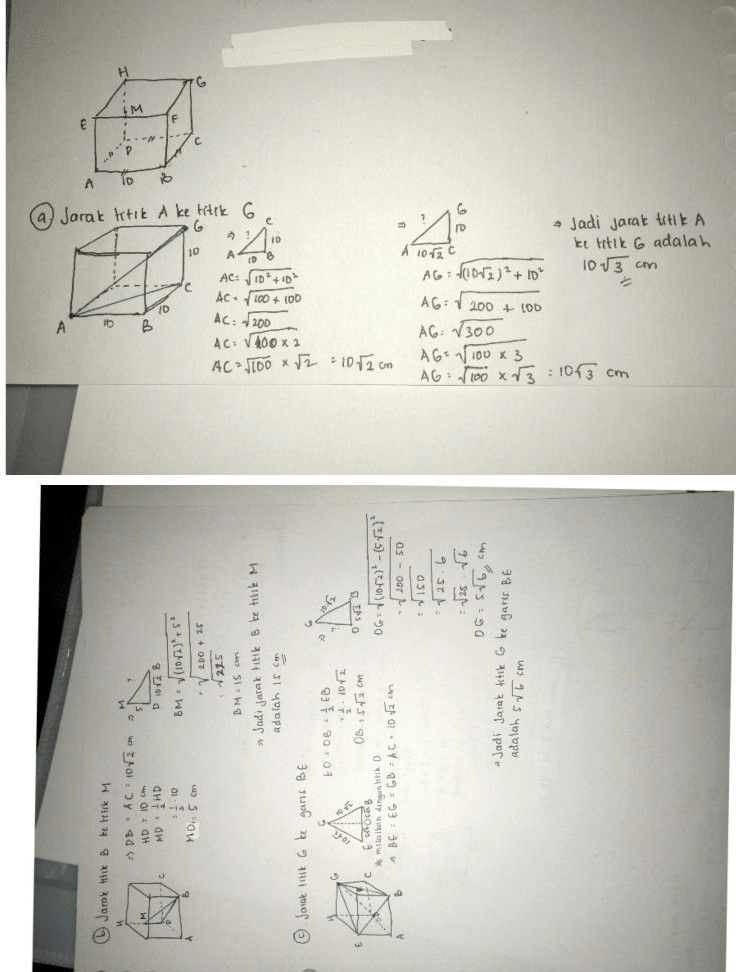 H
G
M
E
F
D
C
A
10
B
(a) Jarak titik A ke titik G
G
10
C
10
A
10
B
⇒ ?
C
10
A 10 B
AC = √10² + 10²
AC = √100 + 100
AC = √200
AC = √100 × 2
AC = √100 × √2 = 10√2 cm
⇒ ?
G
10
A 10√2 C
AG = √(10√2)² + 10²
AG = √200 + 100
AG = √300
AG = √100 × 3
AG = √100 × √3 = 10√3 cm
⇒ Jadi jarak titik A
ke titik G adalah
10√3 cm
(b) Jarak titik B ke titik M
H
M
D
C
A
B
⇒ DB = AC = 10√2 cm
HD = 10 cm
MD = ½ HD
= ½ · 10
MD = 5 cm
⇒ M
5
?
D 10√2 B
BM = √(10√2)² + 5²
= √200 + 25
= √225
BM = 15 cm
⇒ Jadi jarak titik B ke titik M
adalah 15 cm
(c) Jarak titik G ke garis BE
H
G
E
F
C
A
B
G
10√2
10√2
E
B
* misalkan dengan titik O
⇒ BE = EG = GB = AC = 10√2 cm
EO = OB = ½ EB
= ½ · 10√2
OB = 5√2 cm
⇒ G
?
10√2
O 5√2 B
OG = √(10√2)² - (5√2)²
= √200 - 50
= √150
= √25 · 6
= √25 · √6
OG = 5√6 cm
⇒ Jadi Jarak titik G ke garis BE
adalah 5√6 cm